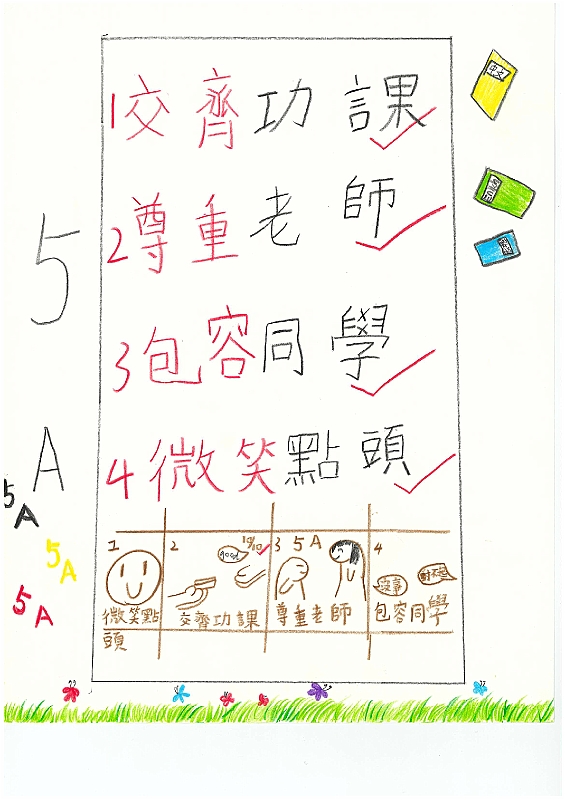 1交齊功課
2尊重老師
3包容同學
4微笑點頭
5A
5A
5A
5A
中文
1
微笑點
頭
2
good
10/10
交齊功課
3 5A
尊重老師
4
沒事
對不起
包容同學